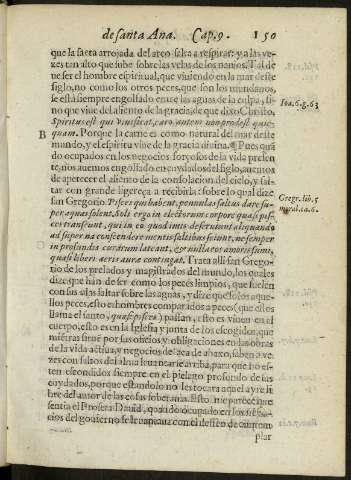 de santa Ana. Cap. 9. 150
que la saeta arrojada del arco salta a respirar: y a las ve-
zes tan alto que sube sobre las velas de los nauios. Tal de
ue ser el hombre espiritual, que viuiendo en la mar deste
siglo, no como los otros peces, que son los mundanos,
se està siempre engolfado entre las aguas de la culpa, si-
no que viue del aliento de la gracia de que dixo Christo.
Ioa. 6. g. 63
Spiritus est qui viuificat, caro autem non prodest quic-
B quam. Porque la carne es como natural del mar deste
mundo, y el espiritu viue de la gracia diuina. ¶ Pues quã
do ocupados en los negocios forçosos de la vida presen
te, nos auemos engolfado en cuydados del siglo, auemos
de apetecer el aliento de la consolacion del cielo, y sal-
tar con grande ligereça a recibirla: sobre lo qual dize
san Gregorio. Pisces qui habent pennulas saltus dare su-
Gregr. lib. 5
per aquas solent. Soli ergo in electorum corpore quasi pis-
moral. ca. 6.
ces transeunt, qui in eo quod imis deseruiunt aliquando
ad superna conscendere mentis saltibus sciunt, ne semper
in profundis curarum lateant, & ex nullatenus amoris summi,
quasi liberi aeris aura contingat. Trata alli san Grego-
rio de los prelados y magistrados del mundo, los quales
dize que han de ser como los peces limpios, que suelen
con sus alas saltar sobre las aguas, y dize que solos aque-
llos peces, esto es hombres comparados a peces (que este es
llama el santo, quasi pisces) passan, esto es viuen en el
cuerpo, esto es en la Iglesia y junta de los escogidos, que
miẽtras siruẽ por sus oficios y obligaciones en las obras
de la vida actiua, y negocios de aca de abaxo, saben a ve-
zes con saltos del alma leuantarse arriba, para que no es-
ten escondidos siempre en el pielago profundo de las
cuydados, porque estandolo no les tocara aquel ayre li-
bre del amor de las cosas soberanas. Esto me parece que
sentia el Profeta Dauid, quando ocupado en los
cios del gouierno se le
plar